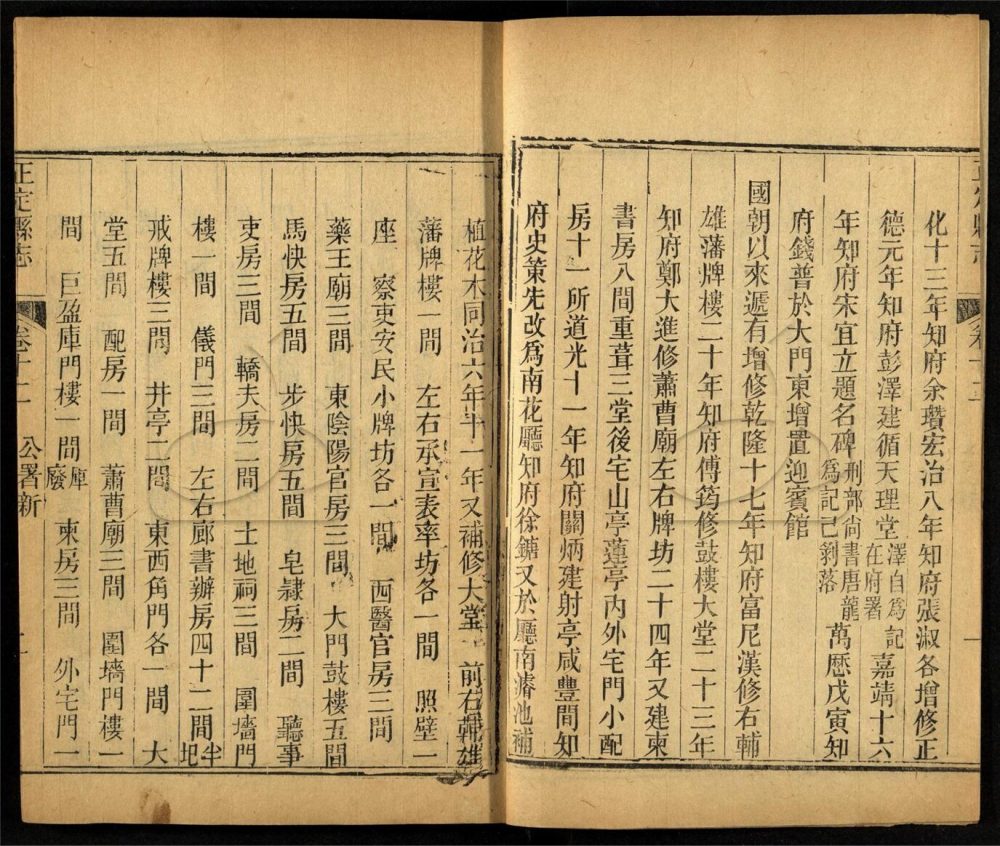 化十三年知府余瓚宏治八年知府張淑各增修正
德元年知府彭澤建循天理堂澤自爲記在府署嘉靖十六
年知府宋宜立題名碑刑部尚書唐龍爲記已剝落萬歷戊寅知
府錢普於大門東增置迎賓館
國朝以來遞有增修乾隆十七年知府富尼漢修右輔
雄藩牌樓二十年知府傅筠修鼓樓大堂二十三年
知府鄭大進修蕭曹廟左右牌坊二十四年又建東
書房八間重葺三堂後宅山亭蓮亭內外宅門小配
房十一所道光十一年知府關炳建射亭咸豐間知
府史策先改爲南花廳知府徐鏞又於廳南濬池補
植花木同治六年十一年又補修大堂 前右輔雄
藩牌樓一間 左右承宣表率坊各一間 照壁二
座 察吏安民小牌坊各一間 西醫官房三間
藥王廟三間 東陰陽官房三間 大門鼓樓五間
馬快房五間 步快房五間 皂隸房二間 聽事
吏房三間 轎夫房二間 土地祠三間 圍墻門
樓一間 儀門三間 左右廊書辦房四十二間半圯
戒牌樓三間 井亭二間 東西角門各一間 大
堂五間 配房一間 蕭曹廟三間 圍墻門樓一
間 巨盈庫門樓一間庫廢 東房三間 外宅門一
正定縣志 卷十二 公署新 二